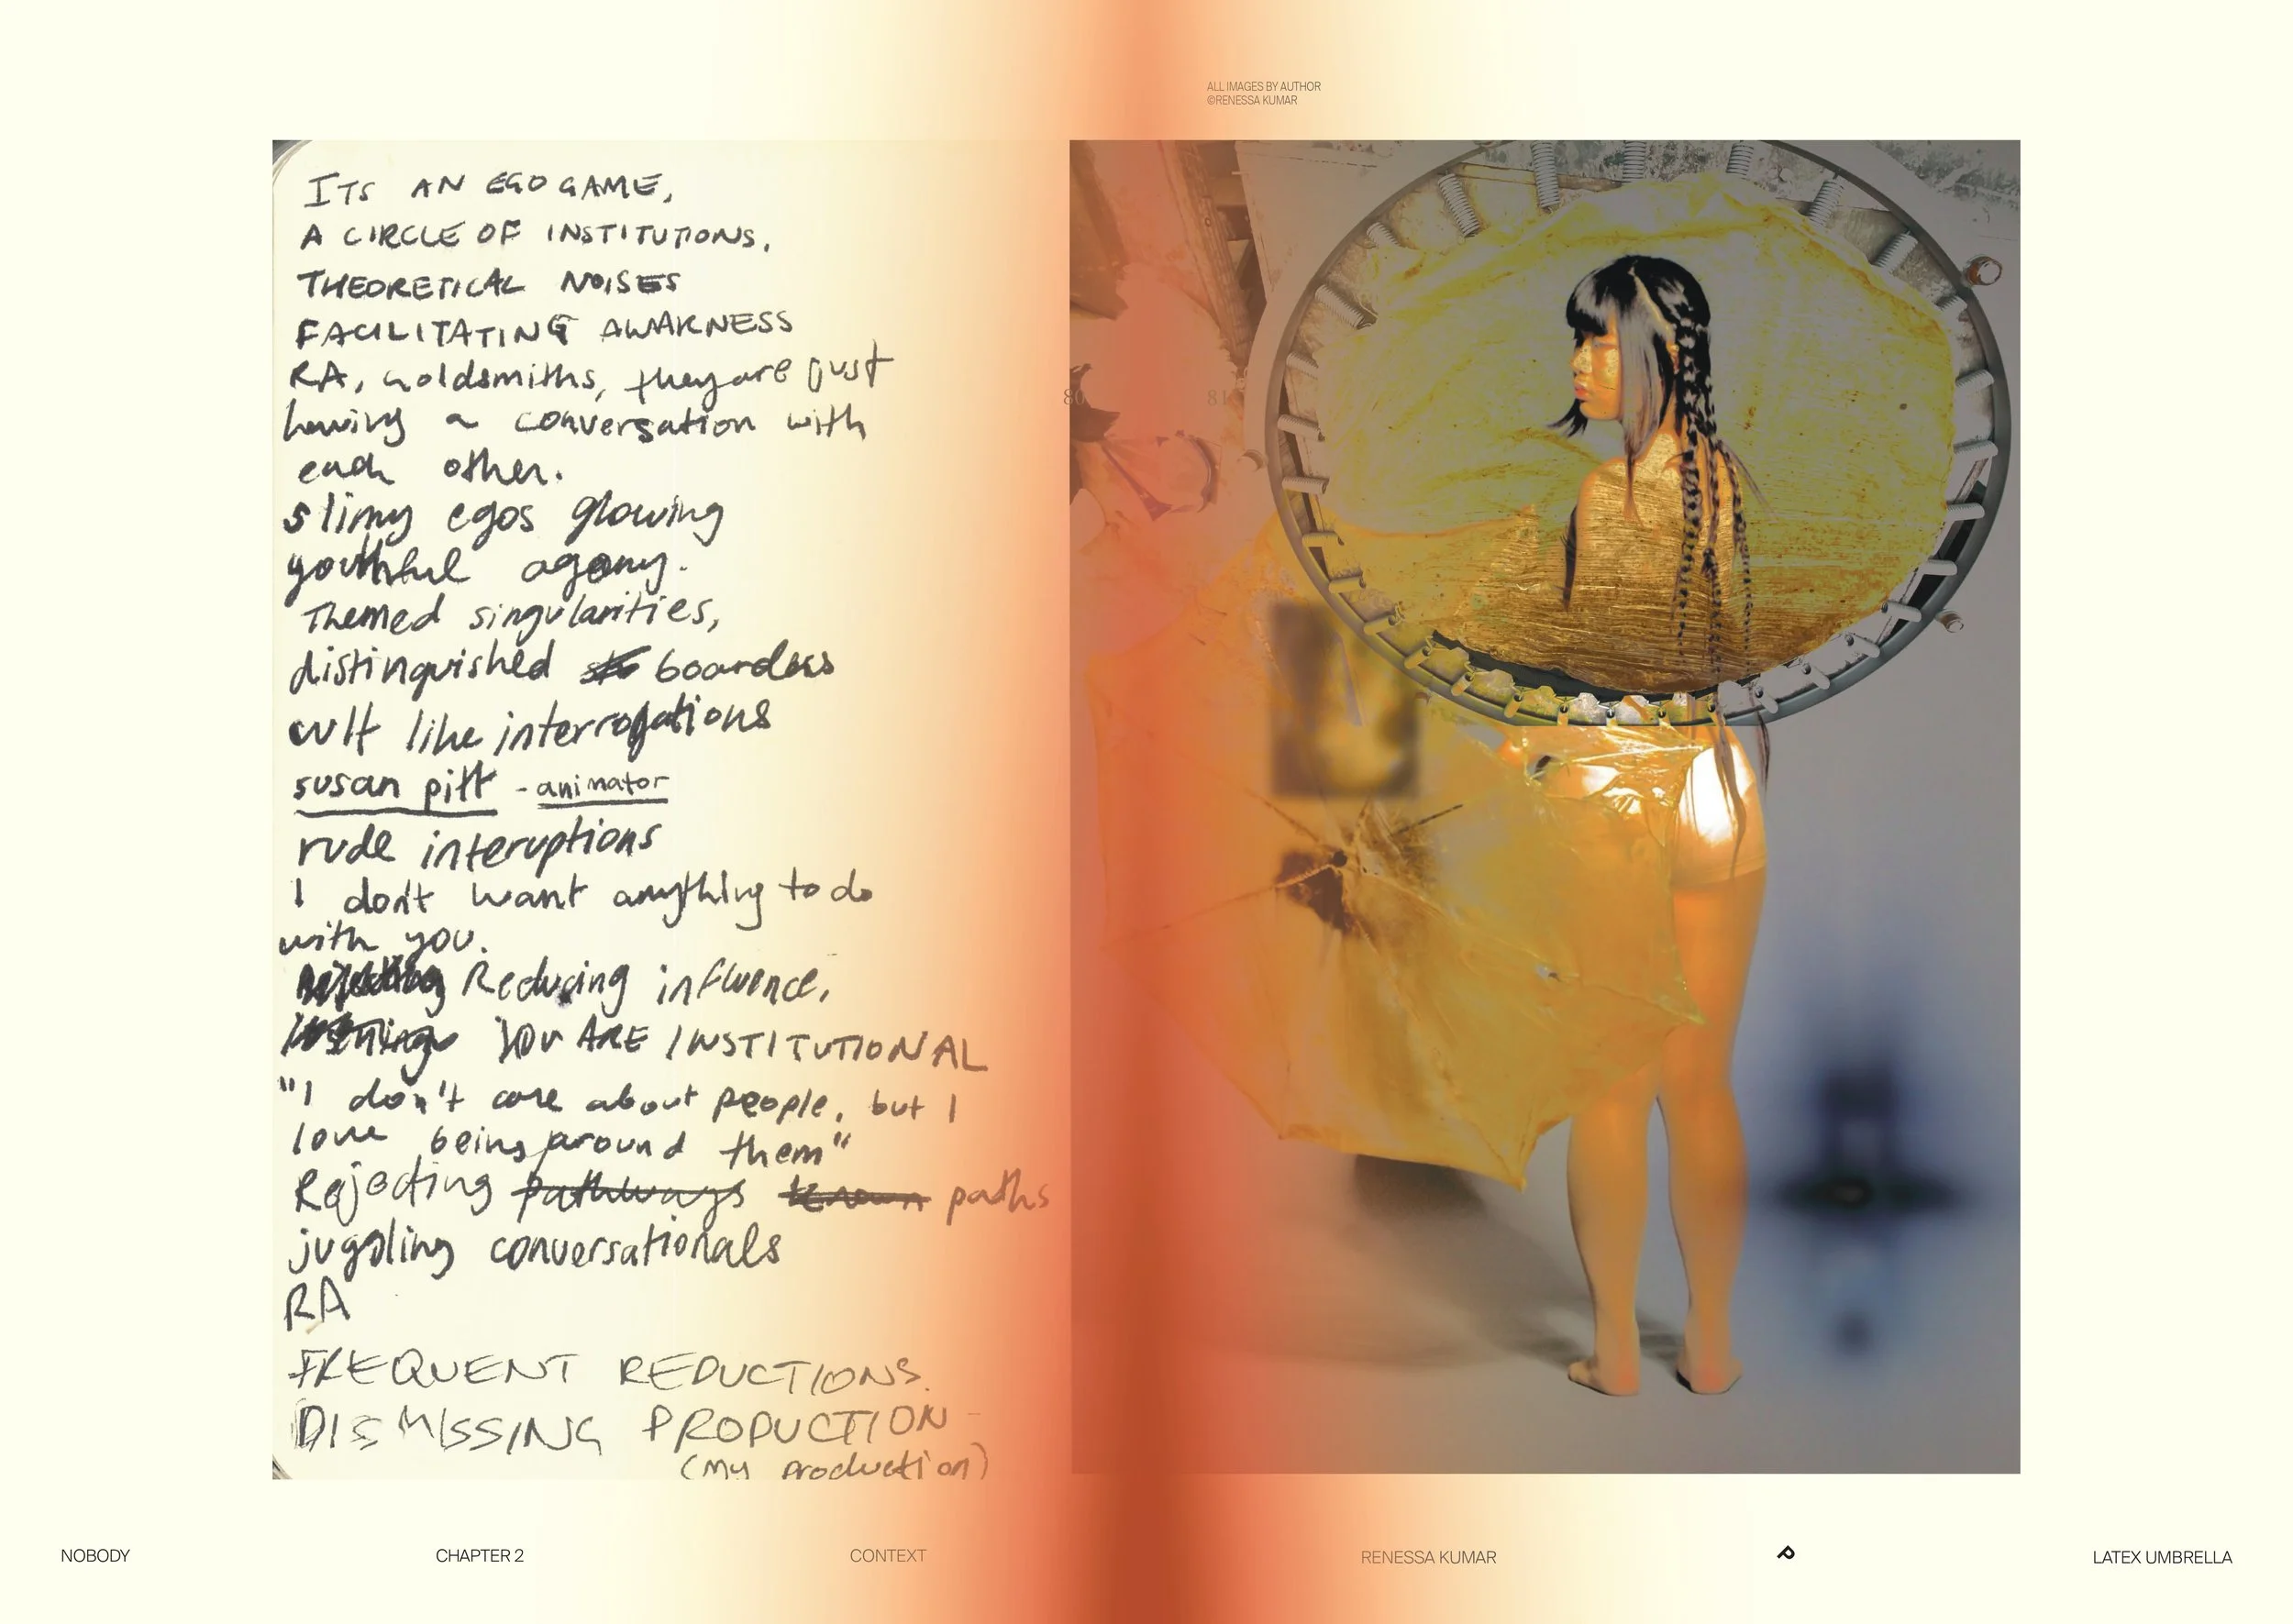 ALL IMAGES BY AUTHOR
©RENESSA KUMAR
ITS AN EGO GAME,
A CIRCLE OF INSTITUTIONS,
THEORETICAL NOISES
FACILITATING AWARNESS
RA, Goldsmiths, they are just
having a conversation with
each other.
slimy egos glowing
youthful agony.
Themed singularities,
distinguished boardless
cult like interrogations
susan pitt - animator
rude interuptions
I don't want anything to do
with you.
Reducing influence,
YOU ARE INSTITUTIONAL
"I don't care about people, but I
love being around them"
Rejecting pathways known paths
juggling conversationals
RA
FREQUENT REDUCTIONS.
DISMISSING PRODUCTION -
(My production)
80
81
NOBODY
CHAPTER 2
CONTEXT
RENESSA KUMAR
P
LATEX UMBRELLA